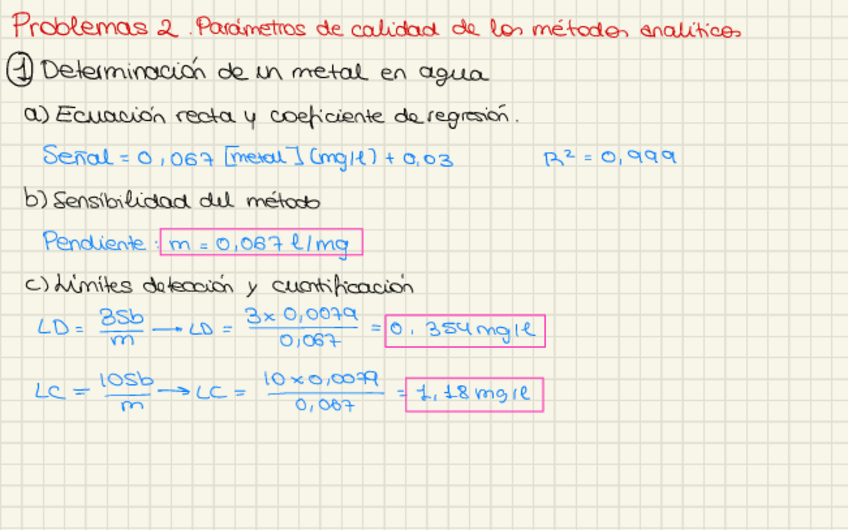 Problemas 2. Parámetros de calidad de los métodos analíticos
① Determinación de un metal en agua
a) Ecuación recta y coeficiente de regresión.
Señal = 0,067 [metal] (mg/l) + 0,03 R² = 0,999
b) Sensibilidad del método
Pendiente: m = 0,067 l/mg
c) Límites detección y cuantificación
LD = 3Sb/m → LD = 3 x 0,0079/0,067 = 0,354 mg/l
LC = 10Sb/m → LC = 10 x 0,0079/0,067 = 1,18 mg/l